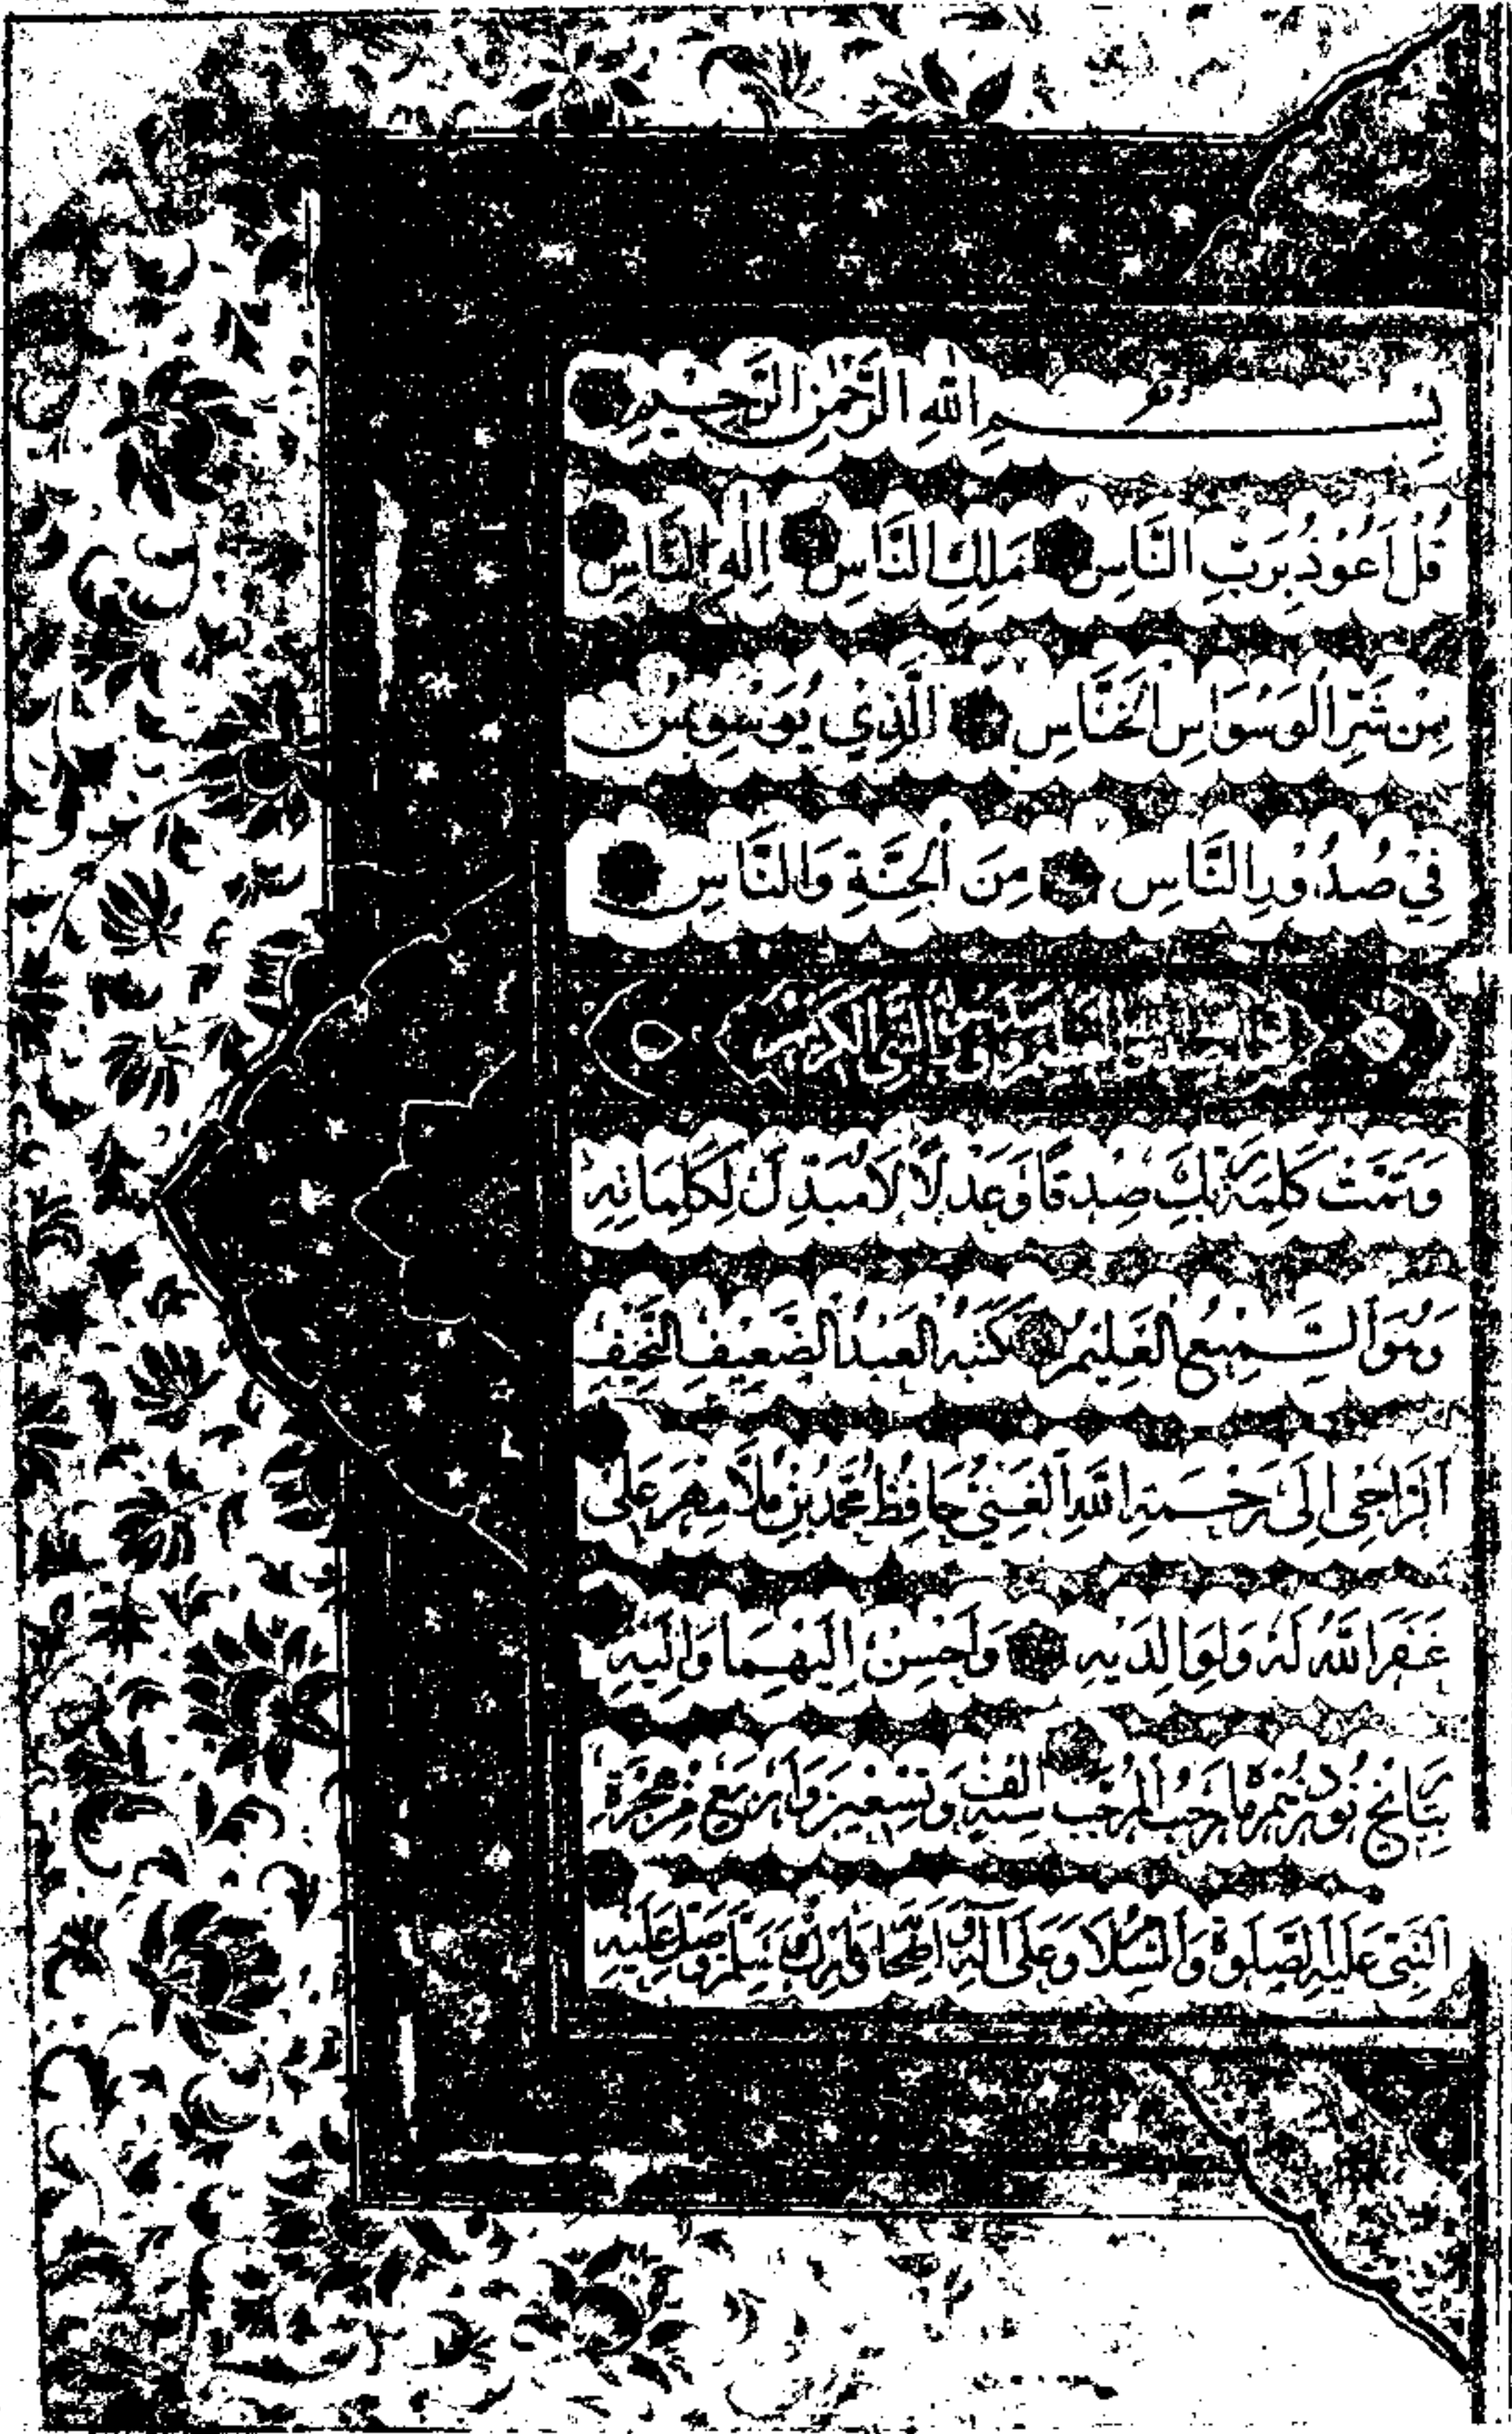 بِسْمِ اللهِ الرَّحْمٰنِ الرَّحِيْمِ
قُلْ اَعُوْذُ بِرَبِّ النَّاسِ مَلِكِ النَّاسِ اِلٰهِ النَّاسِ
مِنْ شَرِّ الْوَسْوَاسِ الْخَنَّاسِ الَّذِيْ يُوَسْوِسُ
فِيْ صُدُوْرِ النَّاسِ مِنَ الْجِنَّةِ وَالنَّاسِ
صدق الله النبي الكريم
وَتَمَّتْ كَلِمَةُ رَبِّكَ صِدْقًا وَعَدْلًا لَا مُبَدِّلَ لِكَلِمَاتِهِ
وَهُوَ السَّمِيْعُ الْعَلِيْمُ كَتَبَهُ الْعَبْدُ الضَّعِيْفُ النَّحِيْفُ
اَلرَّاجِيْ اِلَى رَحْمَةِ اللهِ الْغَنِيِّ حَافِظ مُحَمَّد بِنْ مُلَّا مِهْر عَلِى
غَفَرَ اللهُ لَهُ وَلِوَالِدَيْهِ وَاَحْسَنَ اِلَيْهِمَا وَاِلَيْهِ
بِتَارِيْخِ رَجَبُ الْمُرَجَّبِ سنه اَلْف وَتِسْعِيْنَ وَاَرْبَع مِنْ هِجْرَةِ
النَّبِيِّ عَلَيْهِ الصَّلٰوةُ وَالسَّلَامُ وَعَلَى آلِهِ وَاَصْحَابِهِ وَبَارِكْ وَسَلِّمْ وَصَلِّ عَلَيْهِ